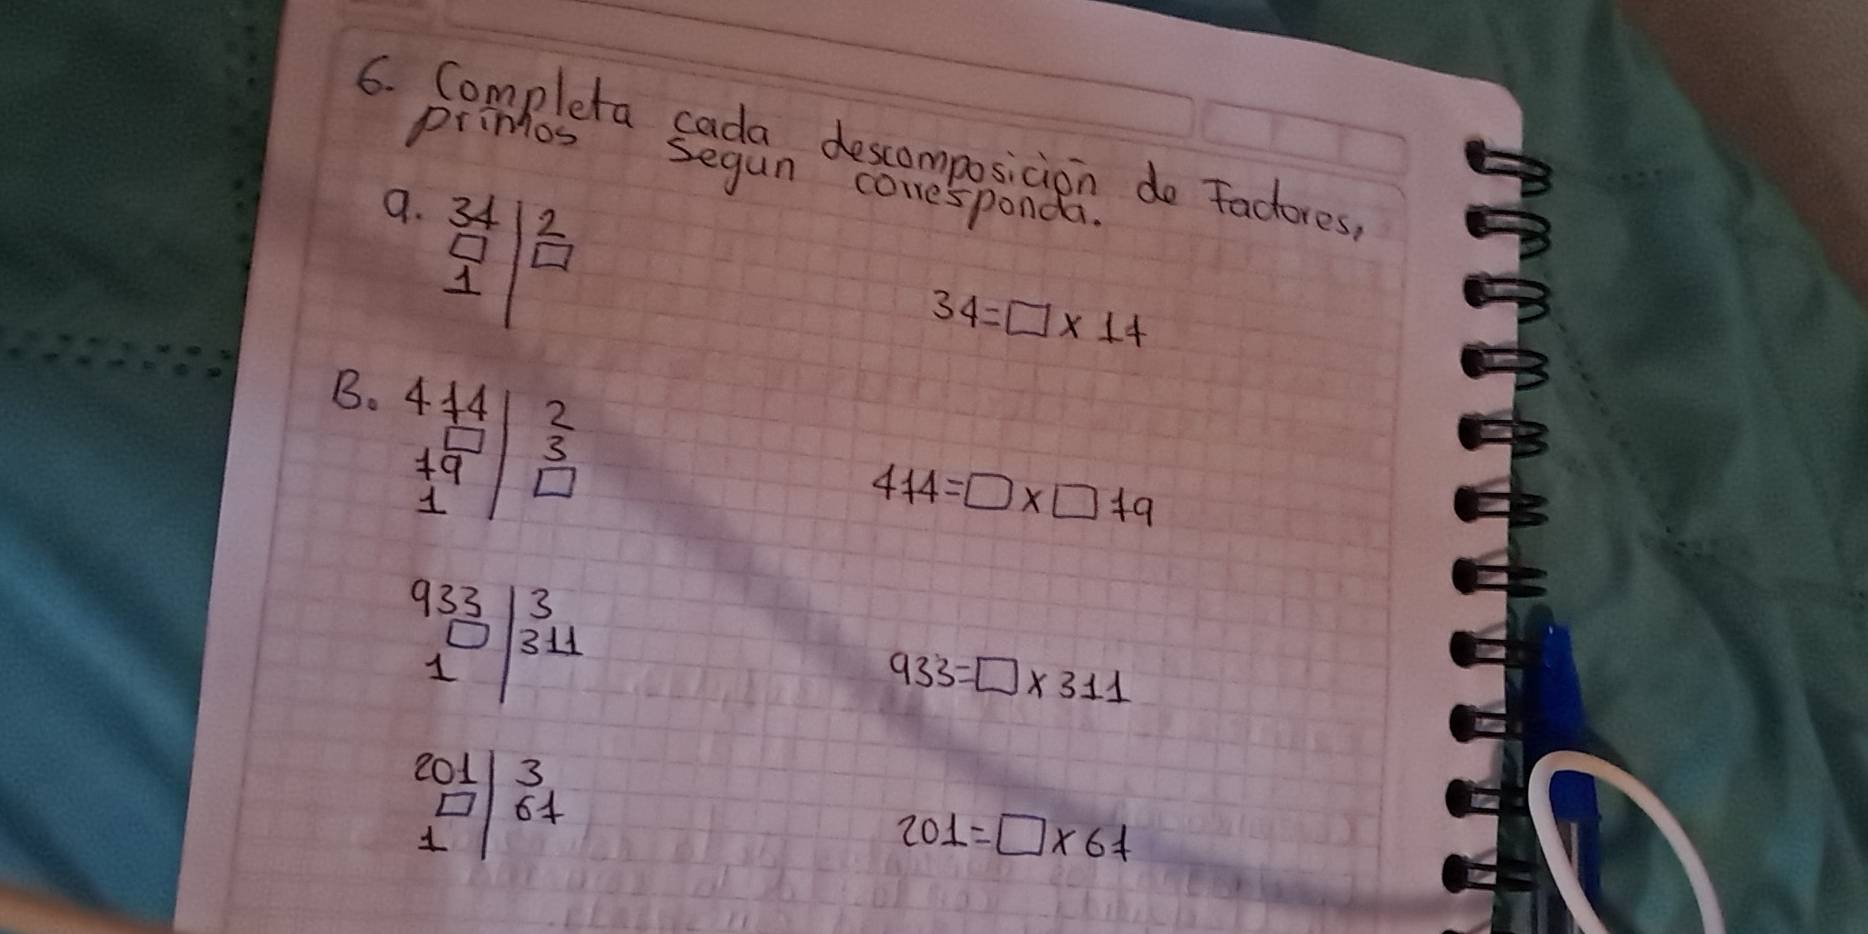 6. Completa cada descomposición de Factores,
primos segun corresponda.
a. 34 | 2
□ | □
1 |
34 = □ x 17
B. 474 | 2
□ | 3
79 | □
1 |
474 = □ x □ 79
933 | 3
□ | 311
1 |
933 = □ x 311
201 | 3
□ | 67
1 |
201 = □ x 67